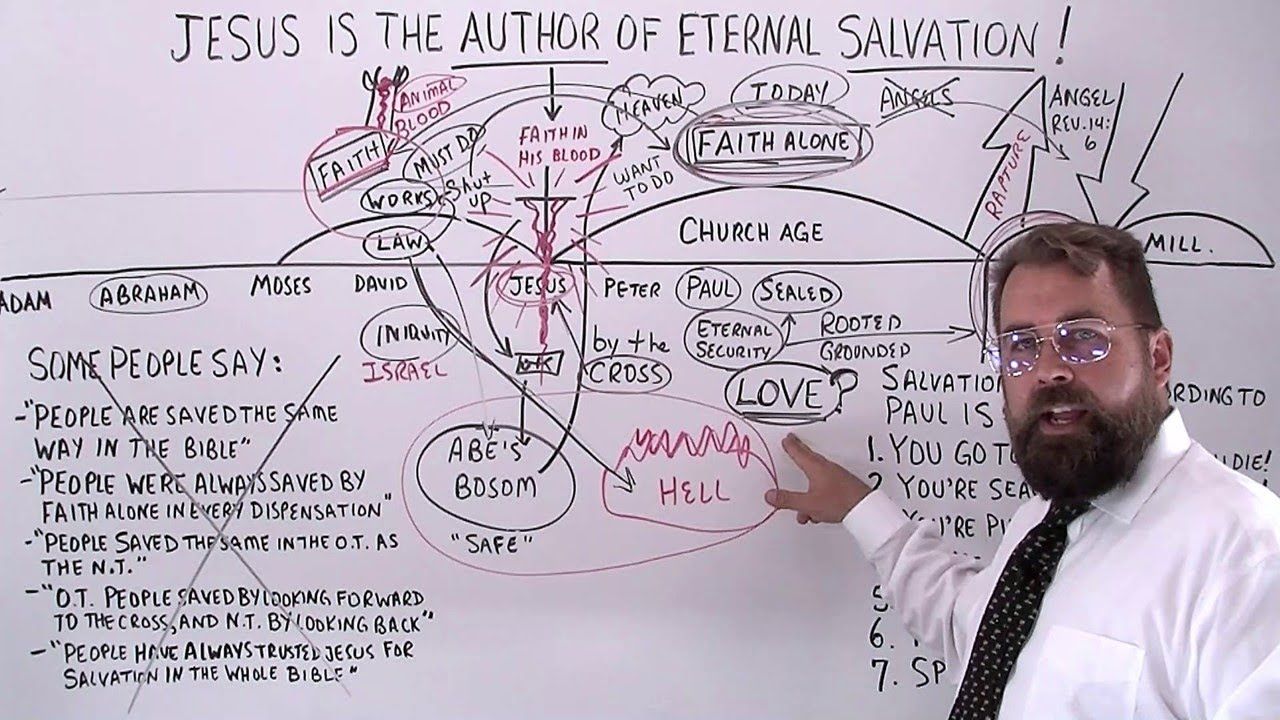 JESUS IS THE AUTHOR OF ETERNAL SALVATION!
ANIMAL
BLOOD
FAITH
MUST DO
WORKS
SHUT
UP
LAW
FAITH IN
HIS BLOOD
HEAVEN
WANT
TO DO
TODAY
FAITH ALONE
ANGELS
RAPTURE
ANGEL
REV. 14:
6
CHURCH AGE
MILL.
ADAM
ABRAHAM
MOSES
DAVID
JESUS
PETER
PAUL
SEALED
INIQUITY
ISRAEL
by the
CROSS
ETERNAL
SECURITY
ROOTED
GROUNDED
LOVE?
ABE'S
BOSOM
"SAFE"
HELL
SOME PEOPLE SAY:
-"PEOPLE ARE SAVED THE SAME
WAY IN THE BIBLE"
-"PEOPLE WERE ALWAYS SAVED BY
FAITH ALONE IN EVERY DISPENSATION"
-"PEOPLE SAVED THE SAME IN THE O.T. AS
THE N.T."
-"O.T. PEOPLE SAVED BY LOOKING FORWARD
TO THE CROSS, AND N.T. BY LOOKING BACK"
-"PEOPLE HAVE ALWAYS TRUSTED JESUS FOR
SALVATION IN THE WHOLE BIBLE"
SALVATION TO
PAUL IS
1. YOU GO DIE!
2. YOU'RE
YOU'RE
5.
6.
7.